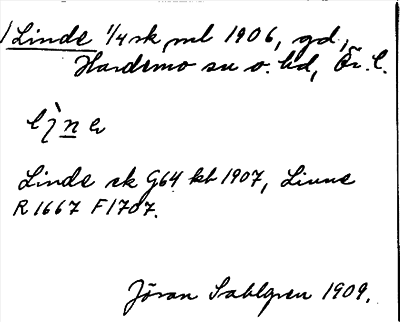 Linde 1/4 sk ml 1906, gd,
Hardemo sn o. hd, Ör. l.
Linde sk G64 kb 1907, Linne
R1667 F1707.
Jöran Sahlgren 1909.